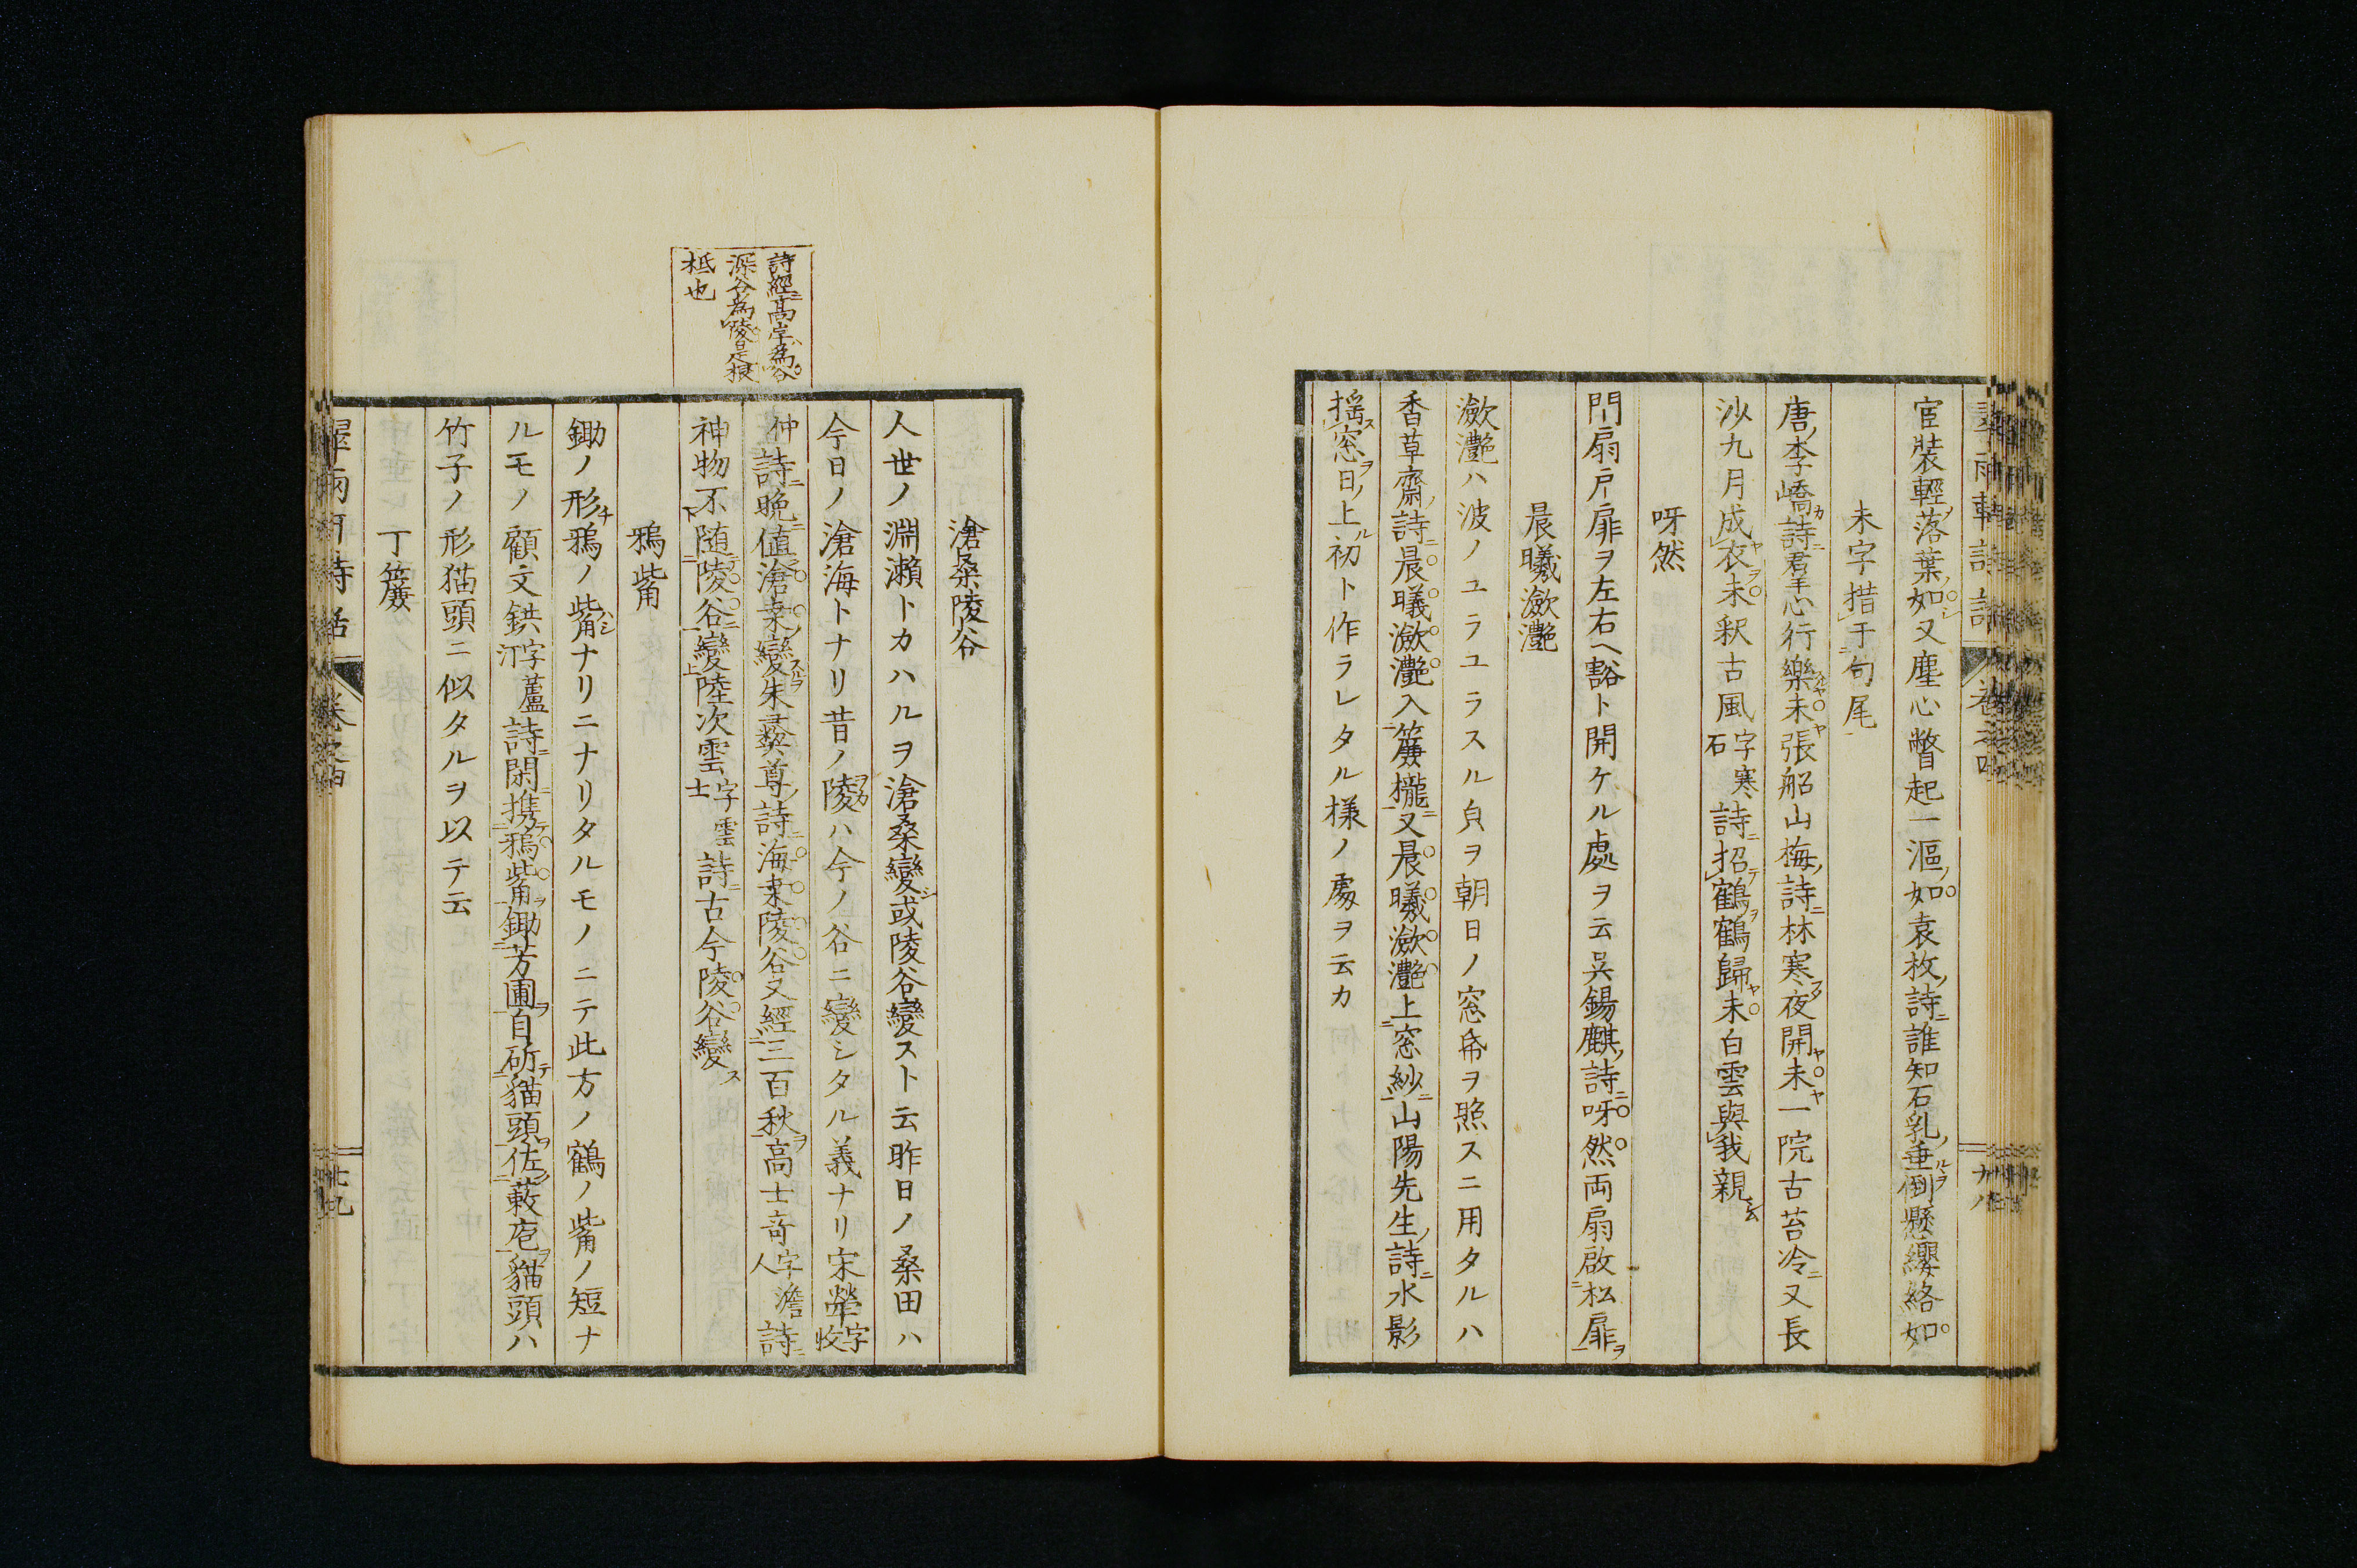 宦装輕落葉如又塵心瞥起一漚如袁枚詩誰知石乳垂倒懸纓絡如
未字措于句尾
唐李嶠詩君心行樂未張船山梅詩林寒夜開未一院古苔冷又長
沙九月成衣未釈古風字寒石詩招鶴鶴歸未白雲與我親
呀然
門扇戸扉ヲ左右ヘ豁ト開ケル處ヲ云呉錫麒詩呀然両扇啟松扉
晨曦瀲灔
瀲灔ハ波ノユラユラスル皃ヲ朝日ノ窓帋ヲ照スニ用タルハ
香草齋詩晨曦瀲灔入簾櫳又晨曦瀲灔上窓紗山陽先生詩水影
揺窓日上初ト作ラレタル様ノ處ヲ云カ
滄桑陵谷
人世ノ淵瀬トカハルヲ滄桑變或陵谷變スト云昨日ノ桑田ハ
今日ノ滄海トナリ昔ノ陵ハ今ノ谷ニ變シタル義ナリ宋犖字牧
仲詩晩値滄桒變朱彛尊詩海桒陵谷又經三百秋高士奇字澹人詩
神物不随陵谷變陸次雲字雲士詩古今陵谷變
詩經高岸為谷
深谷為陵是根
柢也
鵶觜
鋤ノ形鵶ノ觜ナリニナリタルモノニテ此方ノ鶴ノ觜ノ短ナ
ルモノ顧文鉷字蘆汀詩閑携鵶觜鋤芳圃自斫貓頭佐蔌庖貓頭ハ
竹子ノ形猫頭ニ似タルヲ以テ云
丁簾